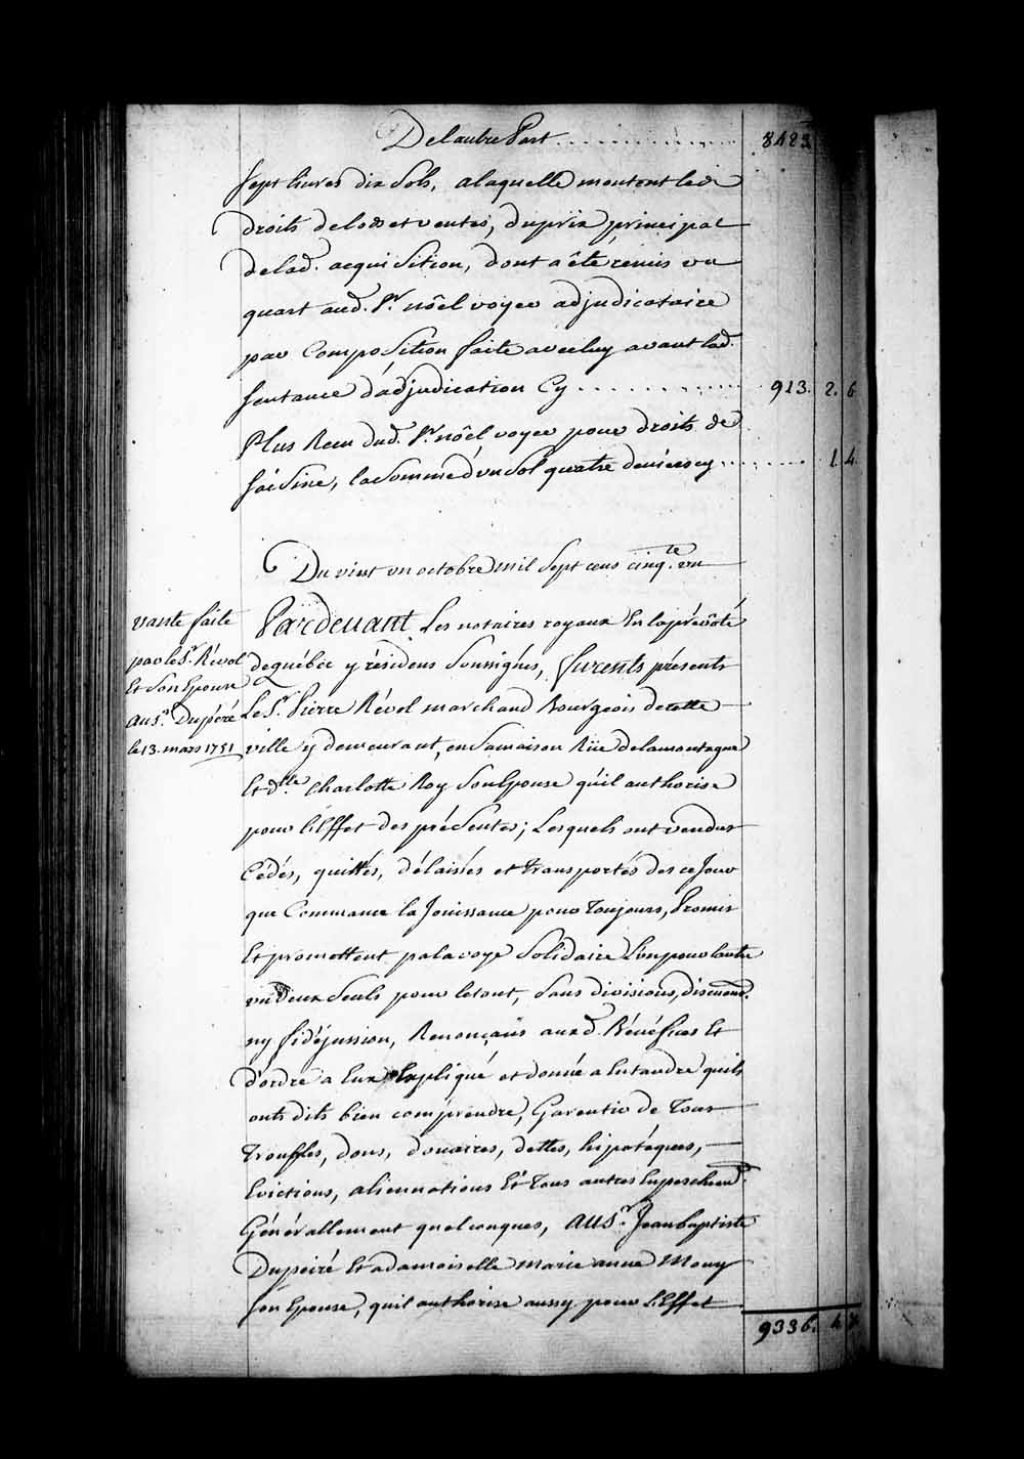 De lautre Part . . . . . . . . . . 8423
Sept livres dix Sols, a laquelle montent led.
droits de lods et ventes, du prix principal
de lad. acquisition, dont a été remis un
quart aud. Sr. nöel voyer adjudicataire
par Composition faite avec luy avant lad.
Sentance d'adjudication Cy . . . . . . . . 913. 2. 6
Plus Recu dud. Sr. nôel voyer pour droits de
Saisine, la Somme d'un Sol quatre deniers cy . . . . . . 1. 4.
Du vint un octobre mil Sept cens cinq.te un
vante faite
par le Sr. Révol
Et Son Epouse
au Sr. Dupéré
le 13. mars 1751
Pardevant Les notaires royaux En la prévôté
de québec y résidens Soussignés, furents présents
Le Sr. Pierre Révol marchand Bourgeois de cette
ville y demeurant, en Sa maison Rüe de la montagne
Et dlle. Charlotte Roy Son Epouse qu'il authorise
pour l'Effet des présentes; Lesquels ont vendus
Cédés, quittés, délaissés et transportés des ce Jour
que Commance la Jouissance pour Toujours, Promis
Et promettent par la voye Solidaire L'un pour lautre
un deux Seuls pour le tout, Sans divisions, discussion.
ny fidéjussion, Renonçans auxd. Bénéfices Et
d'ordre a Eux Expliqué et donné a Entandre quils
onts dits bien comprendre, Garentir de Tous
Trouffles, dons, douaires, dettes, hipotéques,
Evictions, aliennations Et Tous autres Enpeschemt.
Générallement quelconques, au Sr. Jean baptiste
Dupeiré Et a damoiselle marie anne Mony
Son Epouse, quil authorise aussy pour L'Effet
9336. 4